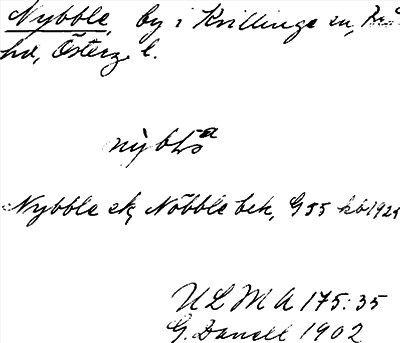 Nybble, by i Kvillinge sn, Brå
hd, Österg. l.
Nybble ek, Nöbble bek, G55 kb 192
ULMA 175:35
G. Danell 1902